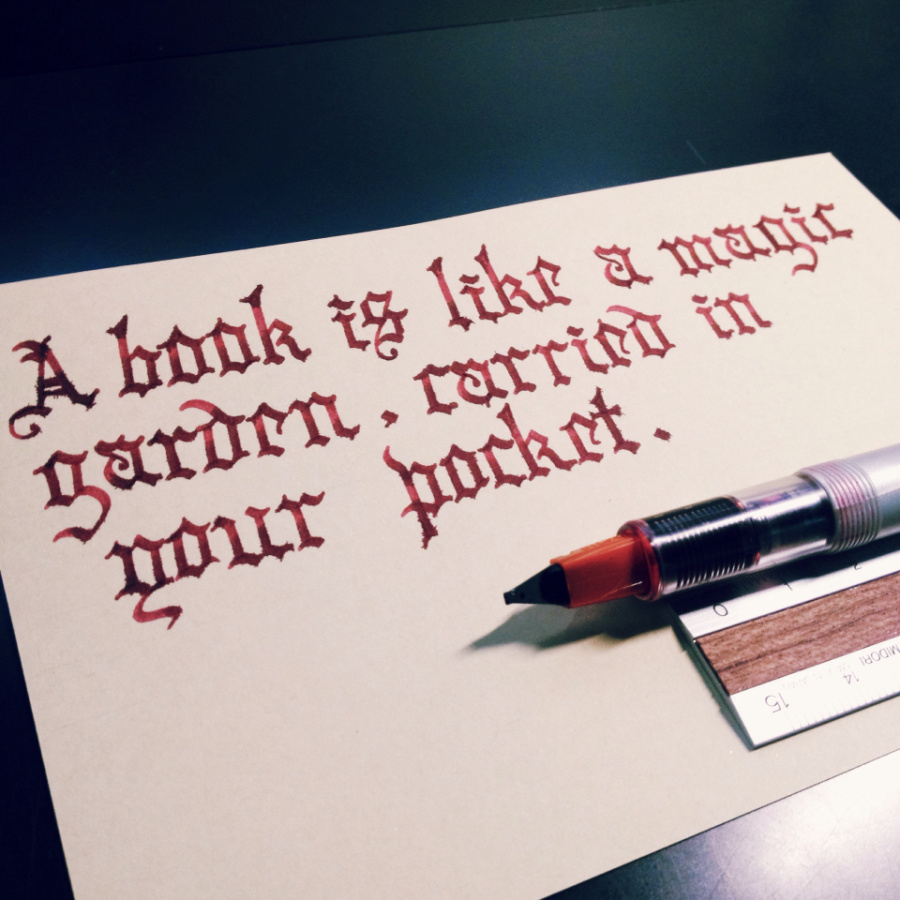 A book is like a magic
garden, carried in
your pocket.
0 1 2
MIDORI
15 14